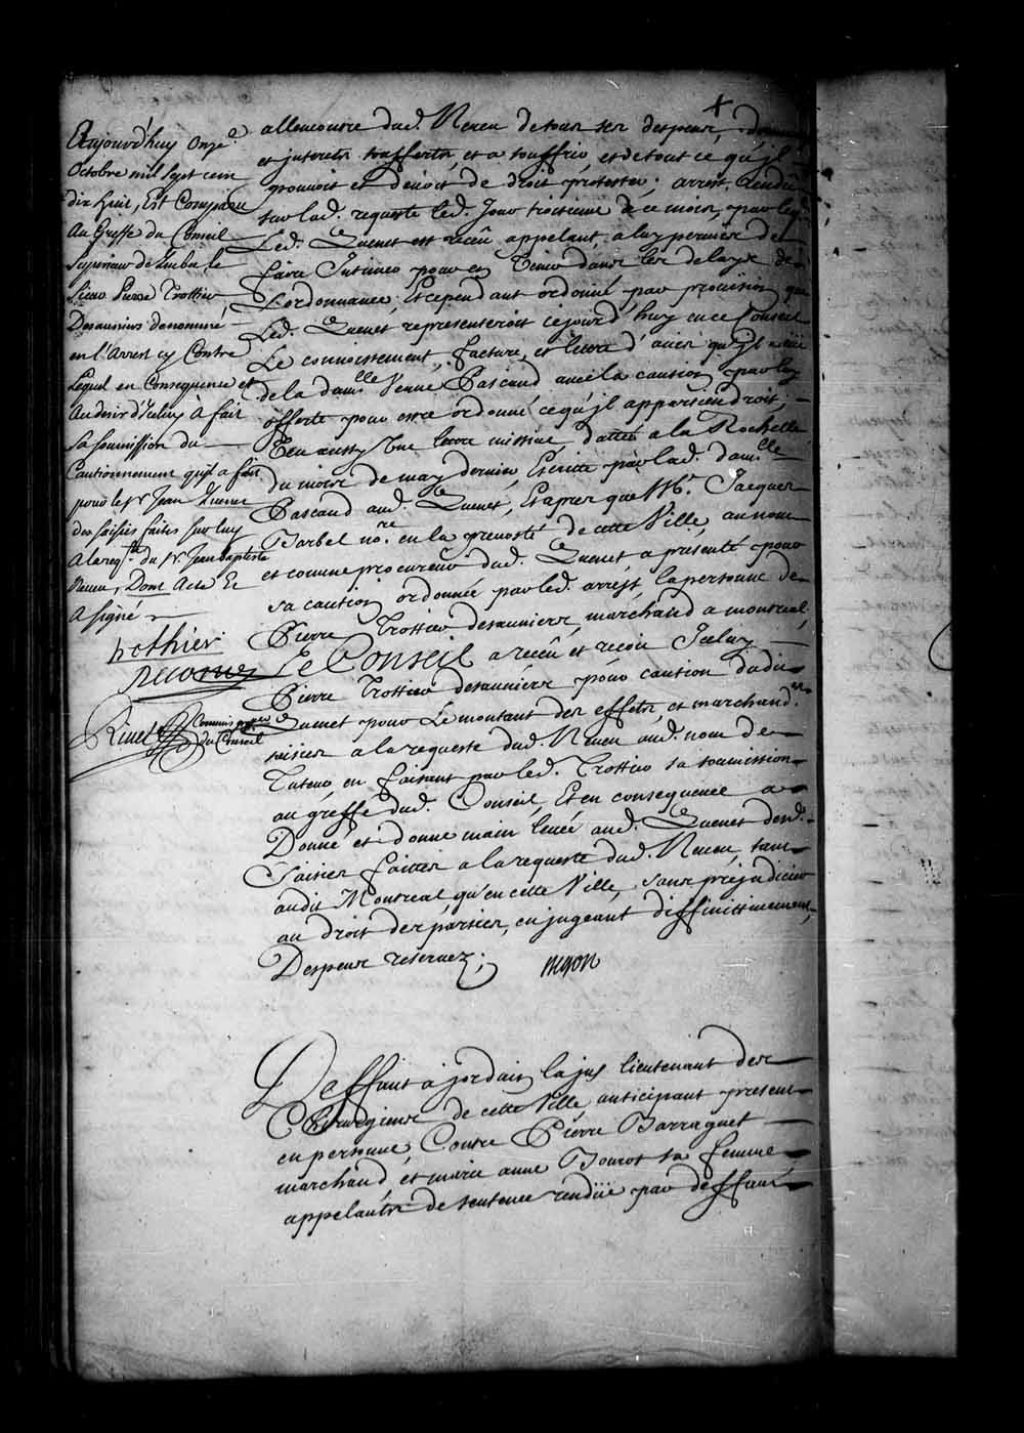 Aujourd'huy onze.e
Octobre mil sept cent
dix huit, Est Comparu
Au Greffe du Conseil
Superieur de Quebec le
Sieur Pierre Trottier
Desauniers denommé
en l'Arrest cy Contre
Lequel en Consequence et
Au desir d'Iceluy à fait
Sa soumission du
Cautionnement qu'il a fait
pour le Sr Jean Quenet
des saisies faites sur luy
A la reqte du Sr Jean baptiste
Neveu, Dont Acte Et
A signé
trothier
Rivet Commis greffier
du Conseil
allencontre dud. Neveu de tous ses despens,
et interests soufferts, et a souffrir, et de tout ce qu'jl
pouvoit et devoit de droit protester; arrest rendu
sur lad. requeste led. Jour troisieme de ce mois, par leql
Led. Quenet est receu appelant, a luy permis de
faire Intimer pour en Venir dans les delays de
L'ordonnance; Et cependant ordonné par provision que
Led. Quenet, representeroit cejourd'huy en ce Conseil
Le connoissement, facture, et lettre d'avis qu'jl a
de la damlle Veuve Pascaud avec la caution par luy
offerte pour estre ordonné ce qu'jl appartiendroit;
Veu aussy Une lettre missive dattée a la Rochelle
du mois de may dernier Ecritte par lad. damlle
Pascaud aud. Quenet, Et apres que Me. Jacques
Barbel nore. en la prevosté de cette Ville, au nom
et comme procureur dud. Quenet, a presenté pour
sa caution ordonnée par led. arrest, la personne de
Pierre Trottier desauniers, marchand a montreal.
Le Conseil a receu et reçoit Iceluy
Pierre Trottier desauniers pour caution dudit
Quenet pour Le montant des effets, et marchandes
saisies a la requeste dud. Neveu aud. nom de
Tuteur, en faisant par led. Trottier sa soumission
au greffe dud. Conseil, Et en consequence a
Donné et donne main levée aud. Quenet desd.
Saisies faittes a la requeste dud. Neveu, tant
audit Montreal qu'en cette Ville, sans préjudicier
au droit des parties, en jugeant diffinitivement,
Despens reservez;
Begon
Deffaut a jordain lajus lieutenant des
Chirurgiens de cette Ville, anticipant present
en personne, Contre Pierre Barraguet
marchand et marie anne Bourot sa femme
appelants de sentence rendüe par deffaut